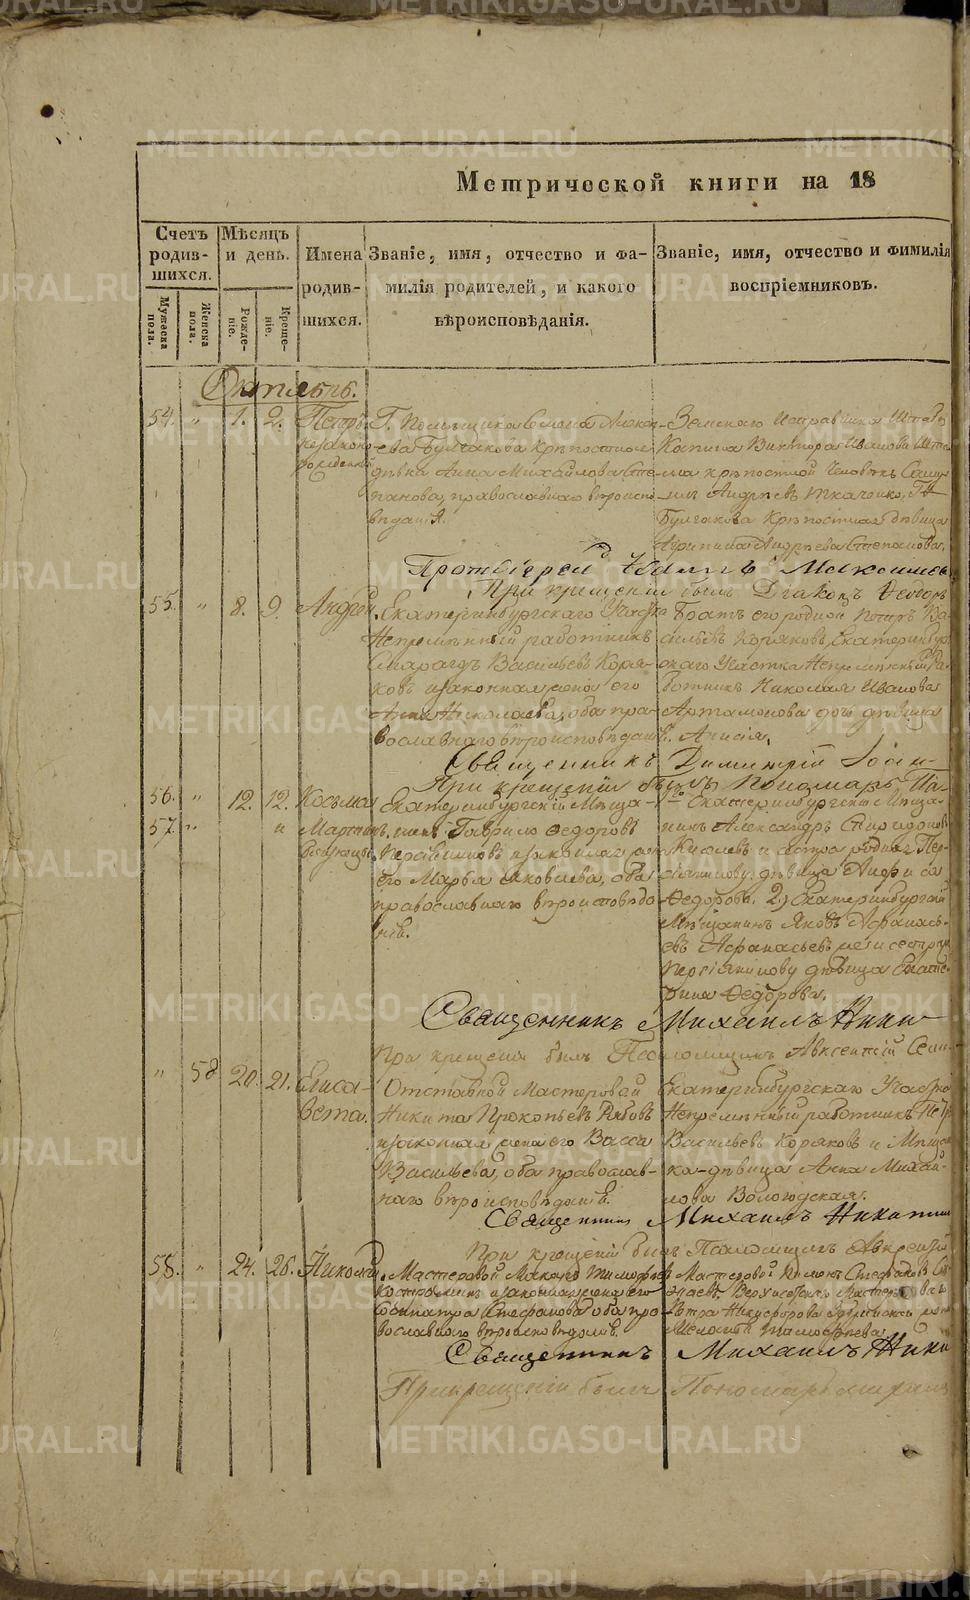 Метрической книги на 18
Счетъ родив-шихся.
Мужеска пола.
Женска пола.
Мѣсяцъ и день.
Рожде-ніе.
Креще-ніе.
Имена родив-шихся.
Званіе, имя, отчество и фа-
милія родителей, и какого
вѣроисповѣданія.
Званіе, имя, отчество и фимилія
воспріемниковъ.
Октябрь.
54. " 1. 2. Петръ
незаконо
рожденный
Г. Помѣщика Семена Алек
ева Булгакова Крѣпостная
дѣвка Анна Михайлова Сте
панова, православнаго вѣроиспо
вѣданія.
Земскаго Исправника Штабъ
Капитана Виктора Иванова
ма крѣпостной Человѣкъ
Андреевъ Ткаченко, Г.
Булгакова Крѣпостная дѣвица
Агрипина Андреева Степанова.
Протоіерей Іоаннъ Максимов
При крещеніи былъ Діаконъ Феодоръ
55. " 8. 9. Андрей.
Екатеринбургскаго Участка
Непремѣнный работникъ
Смарагдъ Васильевъ Коря-
ковъ и законная жена его
Анна Николаева, оба пра-
вославнаго вѣроисповѣданія.
Братъ его родной Петръ Ва
сильевъ Коряковъ, Екатеринбур
скаго Участка Непремѣнный Ра
ботника Николая Иванова
Артамонова дочь дѣвица
Анисія.
Священникъ Димитрій Іоан-
При крещеніи былъ Пономарь
56. " 12. 12. Косьма
57. " и Мартинъ.
Близнецы
Екатеринбургскій Мѣща-
нинъ Гаврило Федоровъ
Персіяниновъ и законная жена
его Марѳа Яковлева, оба
православнаго вѣроисповѣда
нія.
1е Екатеринбургскій Мѣща
нинъ Александръ Спиридоновъ
Киселевъ и сестра родная Пер
сіянинову дѣвица Анфиса
Федорова. 2) Екатеринбургскій
Мѣщанинъ Яковъ Афанась
евъ Афанасьевъ же и сестра
Персіянинову дѣвица Екате
рина Федорова.
Священникъ Михаилъ Ники
При крещеніи былъ Псаломщикъ Авксентій Семи
" 58 20. 21. Елиса-
вета.
Отставной Мастеровой
Никита Прокопьевъ Рябовъ
и законная жена его Васса
Васильева, оба православ-
наго вѣроисповѣданія.
Екатеринбургскаго Участка
Непремѣнный работникъ Петръ
Васильевъ Коряковъ и Мѣщан
ка-дѣвица Анна Михай-
лова Вологодская.
Священникъ Михаилъ Никитин
При крещеніи былъ Псаломщикъ Авксентій
58. " 24. 26. Николай.
Мастеровой Макаръ Тимофеевъ
Костроминъ и законная жена его
Соломатра Стефанова оба пра
вославнаго вѣроисповѣданія.
Мастеровой Стефановъ
Верхисетскаго Мастероваго
Петра Никифорова жена
Тимофеева
Священникъ Михаилъ Ники
При крещеніи былъ Пономарь
METRIKI.GASO-URAL.RU